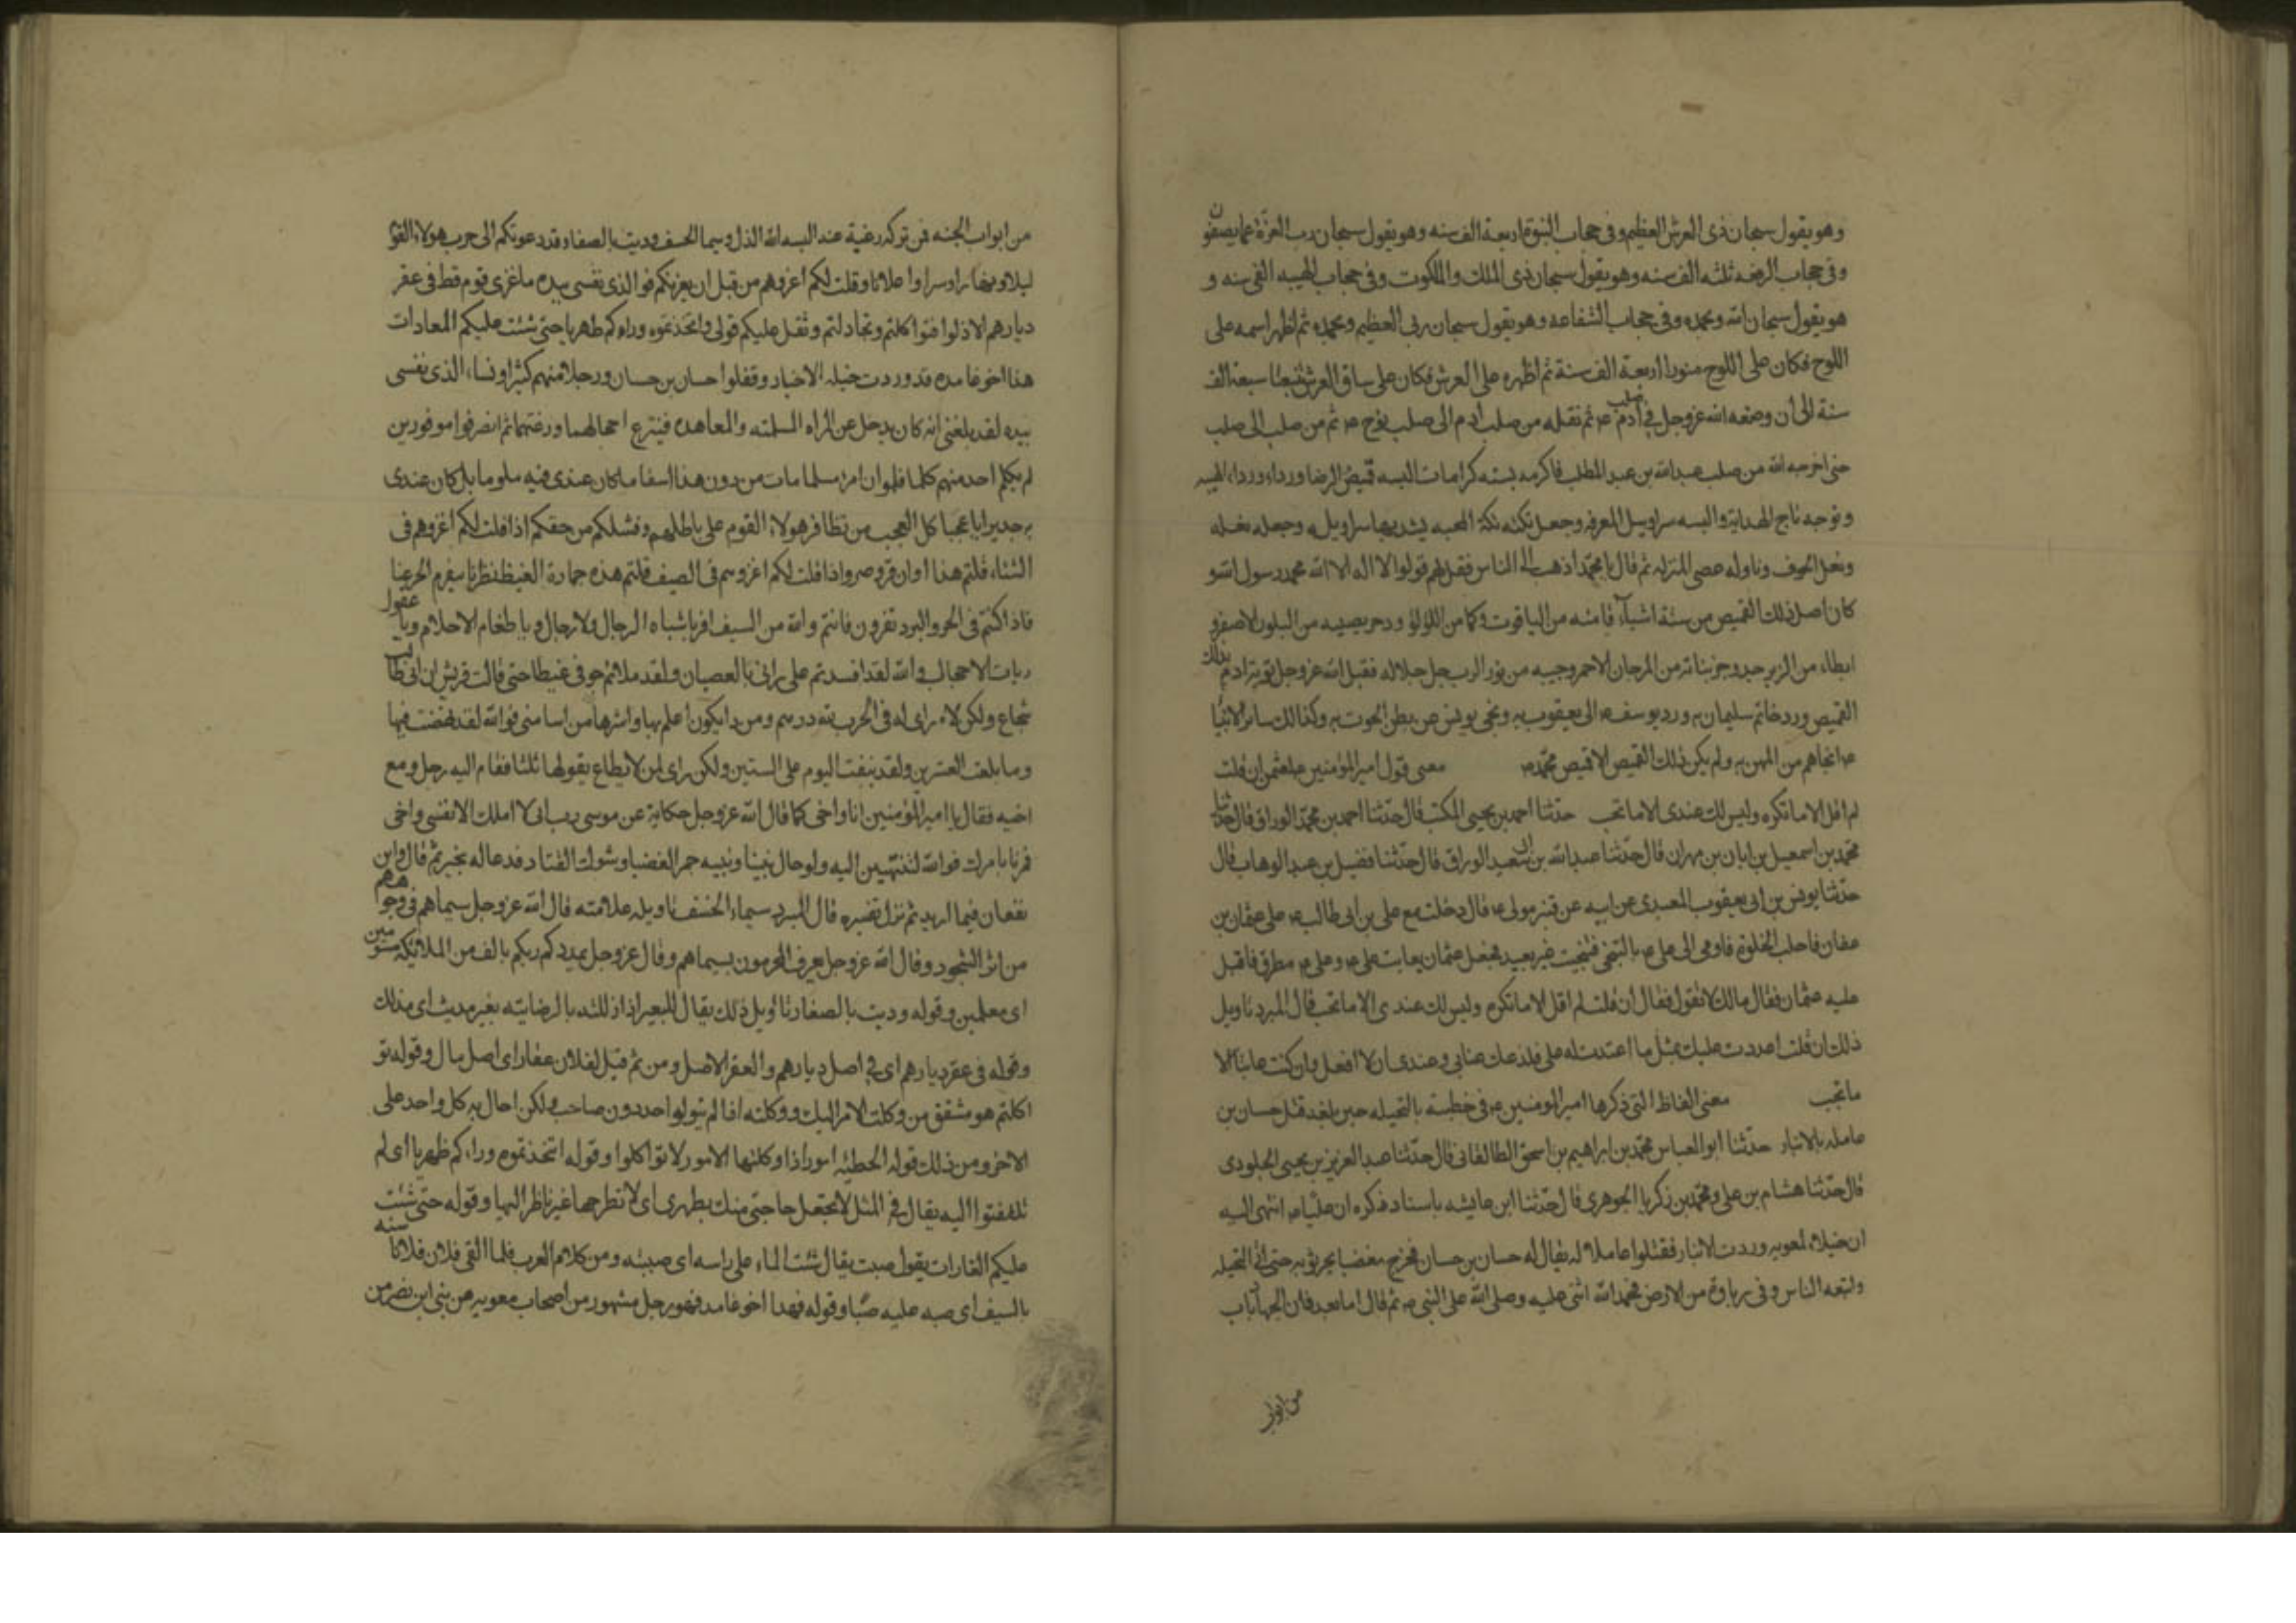 وهو يقول سبحان ذى العرش العظيم وفى حجاب النبوة اربعة الف سنه وهو يقول سبحان رب العزة عما يصفون
وفى حجاب الرفعه ثلثه الف سنه وهو يقول سبحان ذى الملك والملكوت وفى حجاب الهيبه الفى سنه و
هو يقول سبحان الله وبحمده وفى حجاب الشفاعه وهو يقول سبحان ربى العظيم وبحمده ثم اظهر اسمه على
اللوح فكان على اللوح منورا اربعة الف سنة ثم اظهره على العرش فكان على ساق العرش مثبتا سبعة الف
سنة الى ان وضعه الله عزوجل فى صلب آدم ع ثم نقله من صلب آدم الى صلب نوح ع ثم من صلب الى صلب
حتى اخرجه الله من صلب عبدالله بن عبد المطلب فاكرمه بسته كرامات البسه قميص الرضا ورداه رداء الهيبه
و توجه تاج الهداية والبسه سراويل المعرفه وجعل تكته تكة المحبه يشد بها سراويله وجعله نعله
ونعل الخوف وناوله عصى المنزله ثم قال يا محمد اذهب الى الناس فقل لهم قولوا لا اله الا الله محمد رسول الله و
كان اصل ذلك القميص من ستة اشياء قامته من الياقوت وكما من اللؤلؤ ودخريصيه من البلور الاصفر و
ابطاه من الزبرجد وجربانه من المرجان الاحمر وجيبه من نور الرب جل جلاله فقبل الله عزوجل توبة آدم بذلك
القميص ورد خاتم سليمان به ورد يوسف ع الى يعقوب به ونجى يونس من بطن الحوت به وكذالك ساير الانبيا
ع انجاهم من المهن به ولم يكن ذلك القميص الا قميص محمد ع معنى قول امير المؤمنين ع لعثمن ان قلت
لم اقل الا ما تكره وليس لك عندى الا ما تحب حدثنا احمد بن يحيى المكتب قال حدثنا احمد بن محمد الوراق قال حدثنا
محمد بن اسمعيل بن ابان بن مهران قال حدثنا عبدالله بن ابى سعيد الوراق قال حدثنا فضيل بن عبد الوهاب قال
حدثنا يونس بن ابى يعقوب العبدى عن ابيه عن قنبر مولى ع قال دخلت مع على بن ابى طالب ع على عثمان بن
عفان فاحب الخلوة فاومى الى على ع بالتنحى فتنحيت غير بعيد فجعل عثمان يعاتب على ع وعلى ع مطرق فاقبل
عليه عثمان فقال مالك لا تقول فقال ان قلت لم اقل الا ما تكره وليس لك عندى الا ما تحب قال المبرد تاويل
ذلك ان قلت اعددت عليك بمثل ما اعتددت له على فلذعك عتابى وعندى ان لا افعل وان كنت عاتبا الا
ما تحب معنى الفاظ التى ذكرها امير المومنين ع فى خطبته بالنخيله حين بلغه قتل حسان بن
عامله بالانبار حدثنا ابو العباس محمد بن ابراهيم بن اسحق الطالقانى قال حدثنا عبد العزيز بن يحيى الجلودى
قال حدثنا هشام بن على ومحمد بن زكريا الجوهرى قال حدثنا ابن عايشه باسناد ذكره ان عليا ع انتهى اليه
ان خيلا لمعويه وردت الانبار فقتلوا عاملا له يقال له حسان بن حسان فخرج مغضبا يجر ثوبه حتى اتى النخيله
واتبعه الناس وفى رباوة من الارض فحمد الله اثنى عليه وصلى الله على النبى ص ثم قال اما بعد فان الجهاد باب
من ابواب
من ابواب الجنه فمن تركه رغبة عنه البسه الله الذل وسيما الخسف وديث بالصغار وقد دعوتكم الى حرب هؤلاء القوم
ليلا ونهارا وسرا واعلانا وقلت لكم اغزوهم من قبل ان يغزونكم فو الذى نفسى بيده ما غزى قوم قط فى عقر
ديارهم الا ذلوا فتواكلتم وتخاذلتم وثقل عليكم قولى واتخذتموه وراءكم ظهريا حتى شنت عليكم الغارات
هذا اخو غامده قد وردت خيله الانبار وقتلوا حسان بن حسان ورجالا منهم كثيرا ونساء الذى نفسى
بيده لقد بلغنى انه كان يدخل عن المراه المسلمته والمعاهده فينتزع احجالهما ورعثهما ثم انصرفوا موفورين
لم يكلم احد منهم كلما فلو ان امرء مسلما مات من دون هذا اسفا ما كان عندى فيه ملوما بل كان عندى
به جديرا يا عجبا كل العجب من تظافر هولاء القوم على باطلهم وفشلكم من حقكم اذا قلت لكم اغزوهم فى
الشتاء قلتم هذا اوان قر وصر واذا قلت لكم اغزوهم فى الصيف قلتم هذه حمارة الغيظ نظرنا ينصرم الحر عنا
فاذا كنتم فى الحر والبرد تفرون فانتم والله من السيف افر يا شباه الرجال ولا رجال ويا طغام الاحلام ويا عقول
ربات الاحجال والله لقد افسدتم على رائى بالعصيان ولقد ملاتم جوفى غيظا حتى قالت قريش ان ابى طالب
شجاع ولكن لا راى له فى الحرب لله درهم ومن ذا يكون اعلم بها واشد لها مراسا منى فو الله لقد نهضت فيها
وما بلغت العشرين ولقد نيفت اليوم على الستين ولكن راى لمن لا يطاع يقولها ثلثا فقام اليه رجل ومع
اخيه فقال يا امير المؤمنين انا واخى كما قال الله عزوجل حكاية عن موسى رب انى لا املك الا نفسى واخى
فمرنا بامرك فو الله لننتهين اليه ولو حال بيننا وبينه جمر الغضا وشوك القتاد فدعا له بخير ثم قال واين
تقعان فيما اريد ثم نزل تفسيره قال المبرد سيماء الخسف تاويله علامته قال الله عزوجل سيماهم فى وجوههم
من اثر السجود وقال الله عزوجل يعرف المجرمون بسيماهم وقال عزوجل يمددكم ربكم بالف من الملائكة مسومين
اى معلمين وقوله وديث بالصغار تاويل ذلك يقال للبعير اذا ذللته بالرضايته بغير مديث اى مذلل
وقوله فى عقر ديارهم اى فى اصل ديارهم والعقر الاصل ومن ثم قيل لفلان عقار اى اصل مال وقوله تو
اكلتم هو مشقق من وكلت الامر اليك ووكلته اذا لم يتوله احد دون صاحبه ولكن احال به كل واحد على
الاخر ومن ذلك قوله الحطيئه امور اذا وكلتها الامور لا تواكلوا وقوله اتخذتموه وراءكم ظهريا اى لم
تلتفتوا اليه يقال فى المثل لا تجعل حاجتى منك بظهرى اى لا تطرحها غير ناظر اليها وقوله حتى شنت
عليكم الغارات يقول صبت يقال شنت الماء على راسه اى صببته ومن كلام العرب فلما القى فلان فلانا شنه
بالسيف اى صبه عليه صبا وقوله فهذا اخو غامد فهو رجل مشهور من اصحاب معويه من بنى ابن نصر من